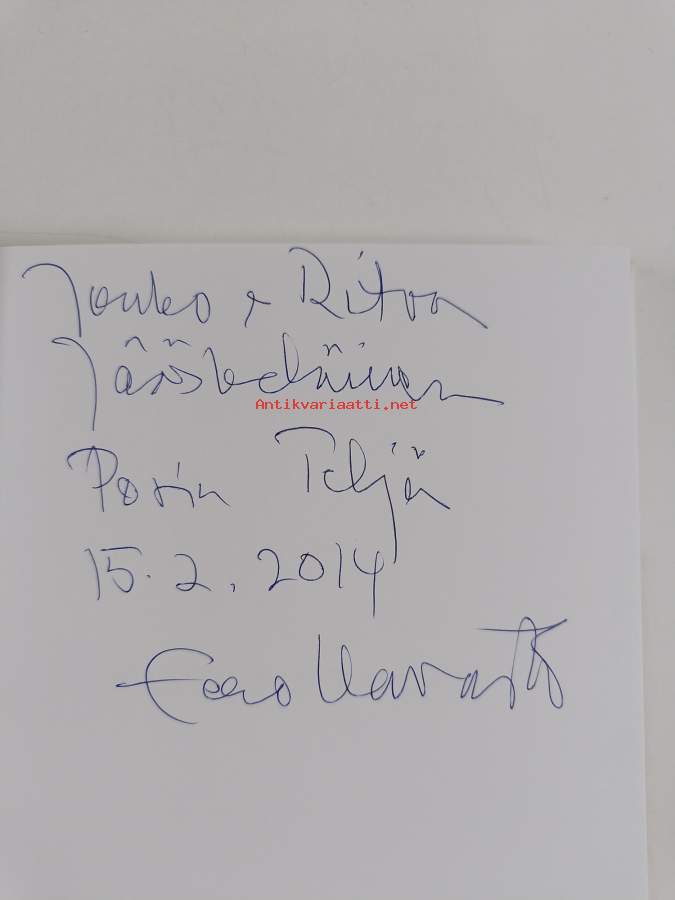 Jouko & Ritva
Jääskeläinen
Antikvariaatti.net
Porin Teljä
15.2.2014
Eero